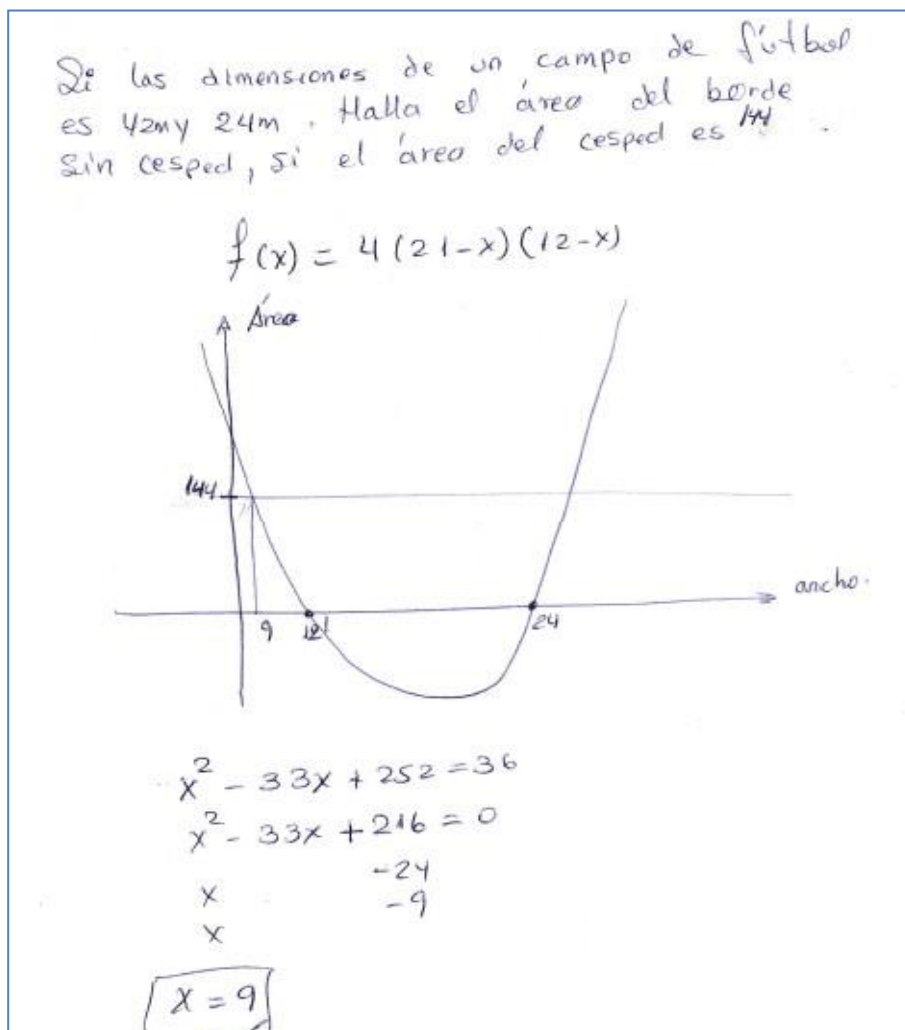 Si las dimensiones de un campo de fútbol
es 42m y 24m. Halla el área del borde
Sin cesped, si el área del cesped es 144.
f(x) = 4(21-x)(12-x)
Área
144
ancho.
9 12 24
x² - 33x + 252 = 36
x² - 33x + 216 = 0
x -24
x -9
x = 9